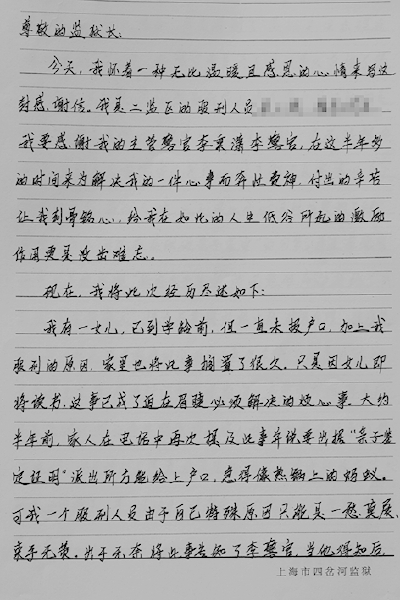 尊敬的监狱长:
今天,我怀着一种无比温暖且感恩的心情来写这
封感谢信。我是二监区的服刑人员
我要感谢我的主管警官李秉潇李警官,在这半年多
的时间来为解决我的一件心事而奔波费神,付出的辛苦
让我刻骨铭心,给我在如此的人生低谷所起的激励
作用更是没出难忘。
现在,我将此次经历尽述如下:
我有一女儿,已到学龄前,但一直未报户口,加上我
服刑的原因,家里也将此事搁置了很久。只是因女儿即
将读书,这事已成了迫在眉睫必须解决的烦心事。大约
半年前,家人在电话中再次提及此事并说要出据“亲子鉴
定证明”派出所方能给上户口,急得像热锅上的蚂蚁。
可我一个服刑人员由于自己特殊原因只能是一愁莫展、
束手无策。出于无奈将此事告知了李警官,当他得知后,
上海市四岔河监狱